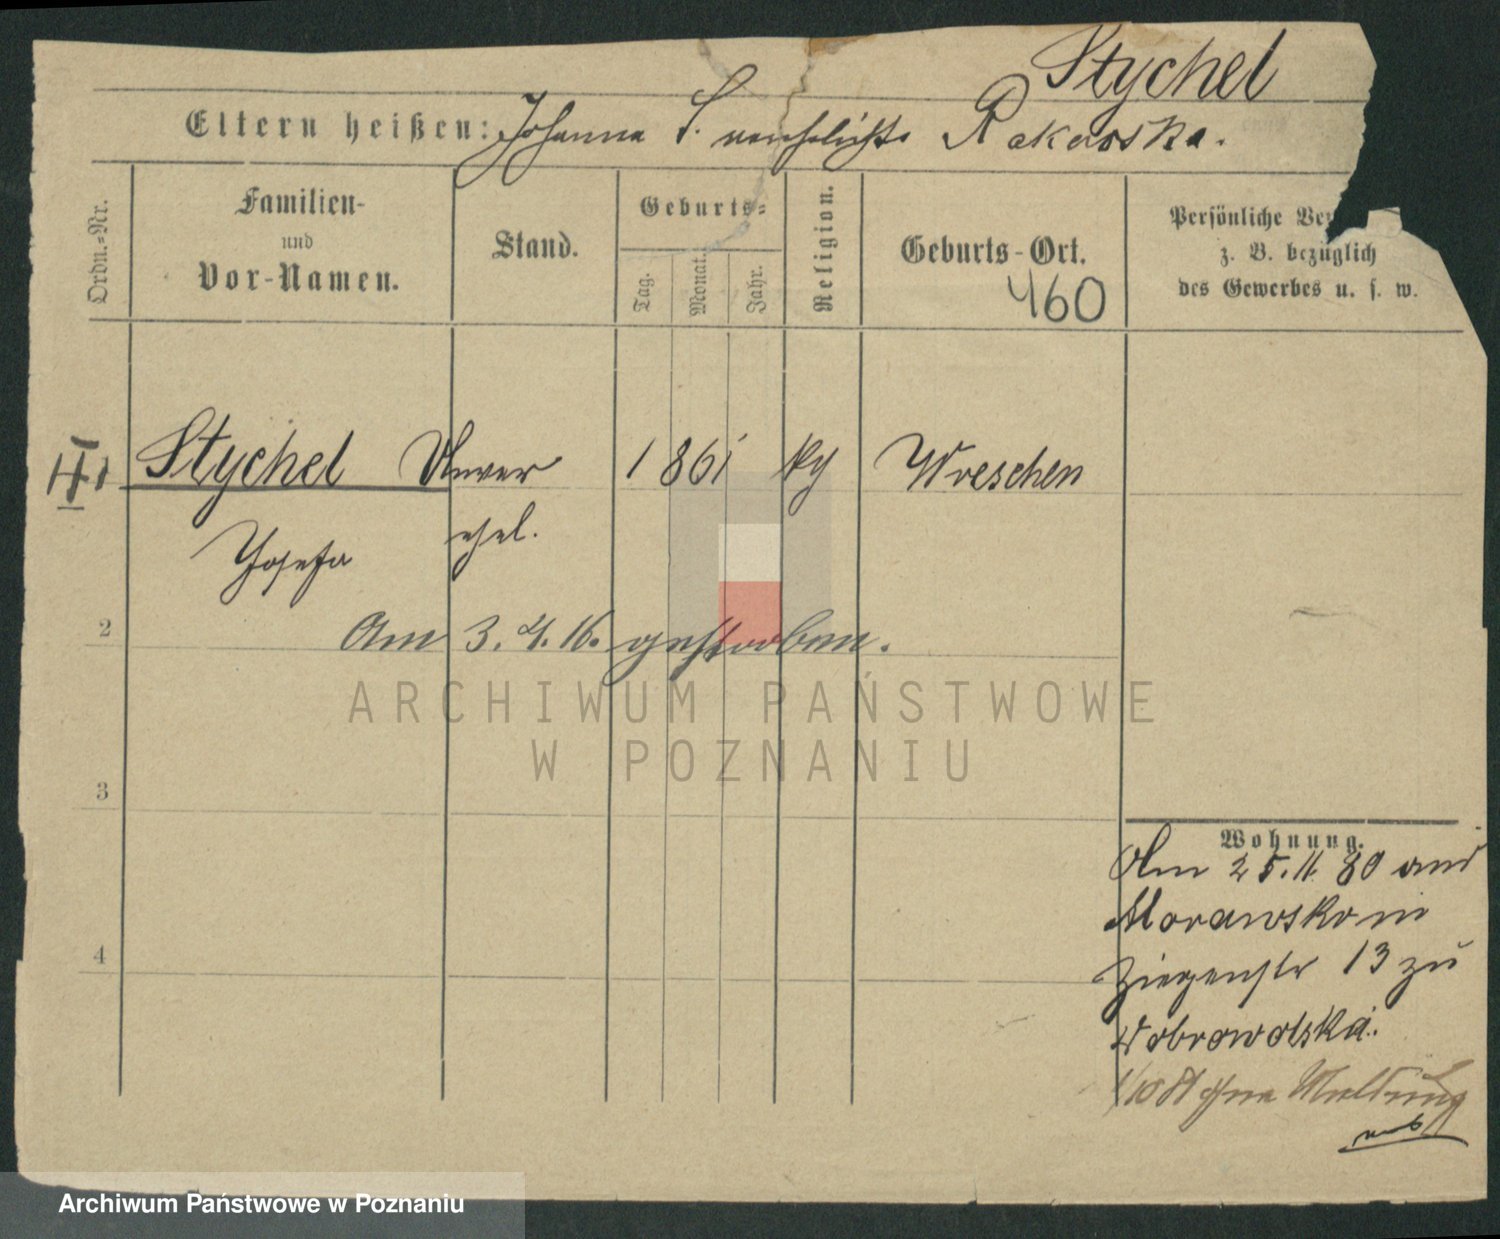 Stychel
Eltern heißen: Johanna S. verehelichte Rakowska.
Ordn.-Nr.
Familien-
und
Vor-Namen.
Stand.
Geburts-
Tag.
Monat.
Jahr.
Religion.
Geburts-Ort.
460
Persönliche
z. B. bezüglich
des Gewerbes u. s. w.
1 Stychel Unver 1861 kz Wreschen
Josefa ehel.
2 Am 3. 4. 16. gestorben.
ARCHIWUM PAŃSTWOWE
W POZNANIU
3
4
Wohnung.
Am 25. 11. 80 aus
Morawsko in
Ziegenstr 13 zu
Dobrowolska.
1/10 81 ohne Meldung
Archiwum Państwowe w Poznaniu